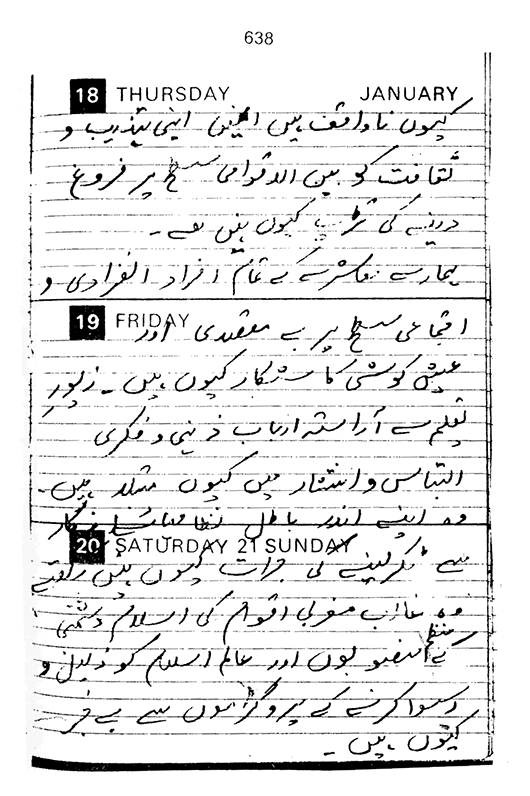 638
18 THURSDAY JANUARY
کیوں ناواقف ہیں انہیں اپنی تہذیب و
ثقافت کو بین الاقوامی سطح پر فروغ
دینے کی تڑپ کیوں نہیں ہے۔
ہمارے معاشرے کے تمام افراد انفرادی و
19 FRIDAY
اجتماعی سطح پر بے مقصدی اور
عیش کوشی کا شکار کیوں ہیں۔ زیور
تعلیم سے آراستہ ارباب ذہنی و فکری
التباس و انتشار میں کیوں مبتلا ہیں۔
وہ اپنے اندر باطل
20 SATURDAY 21 SUNDAY
سے ٹکر لینے کی جرات کیوں نہیں رکھتے
وہ مغربی اقوام کی اسلام دشمنی
کے منظم منصوبوں اور عالم اسلام کو ذلیل و
رسوا کرنے کے پروگراموں سے بے خبر
کیوں ہیں۔